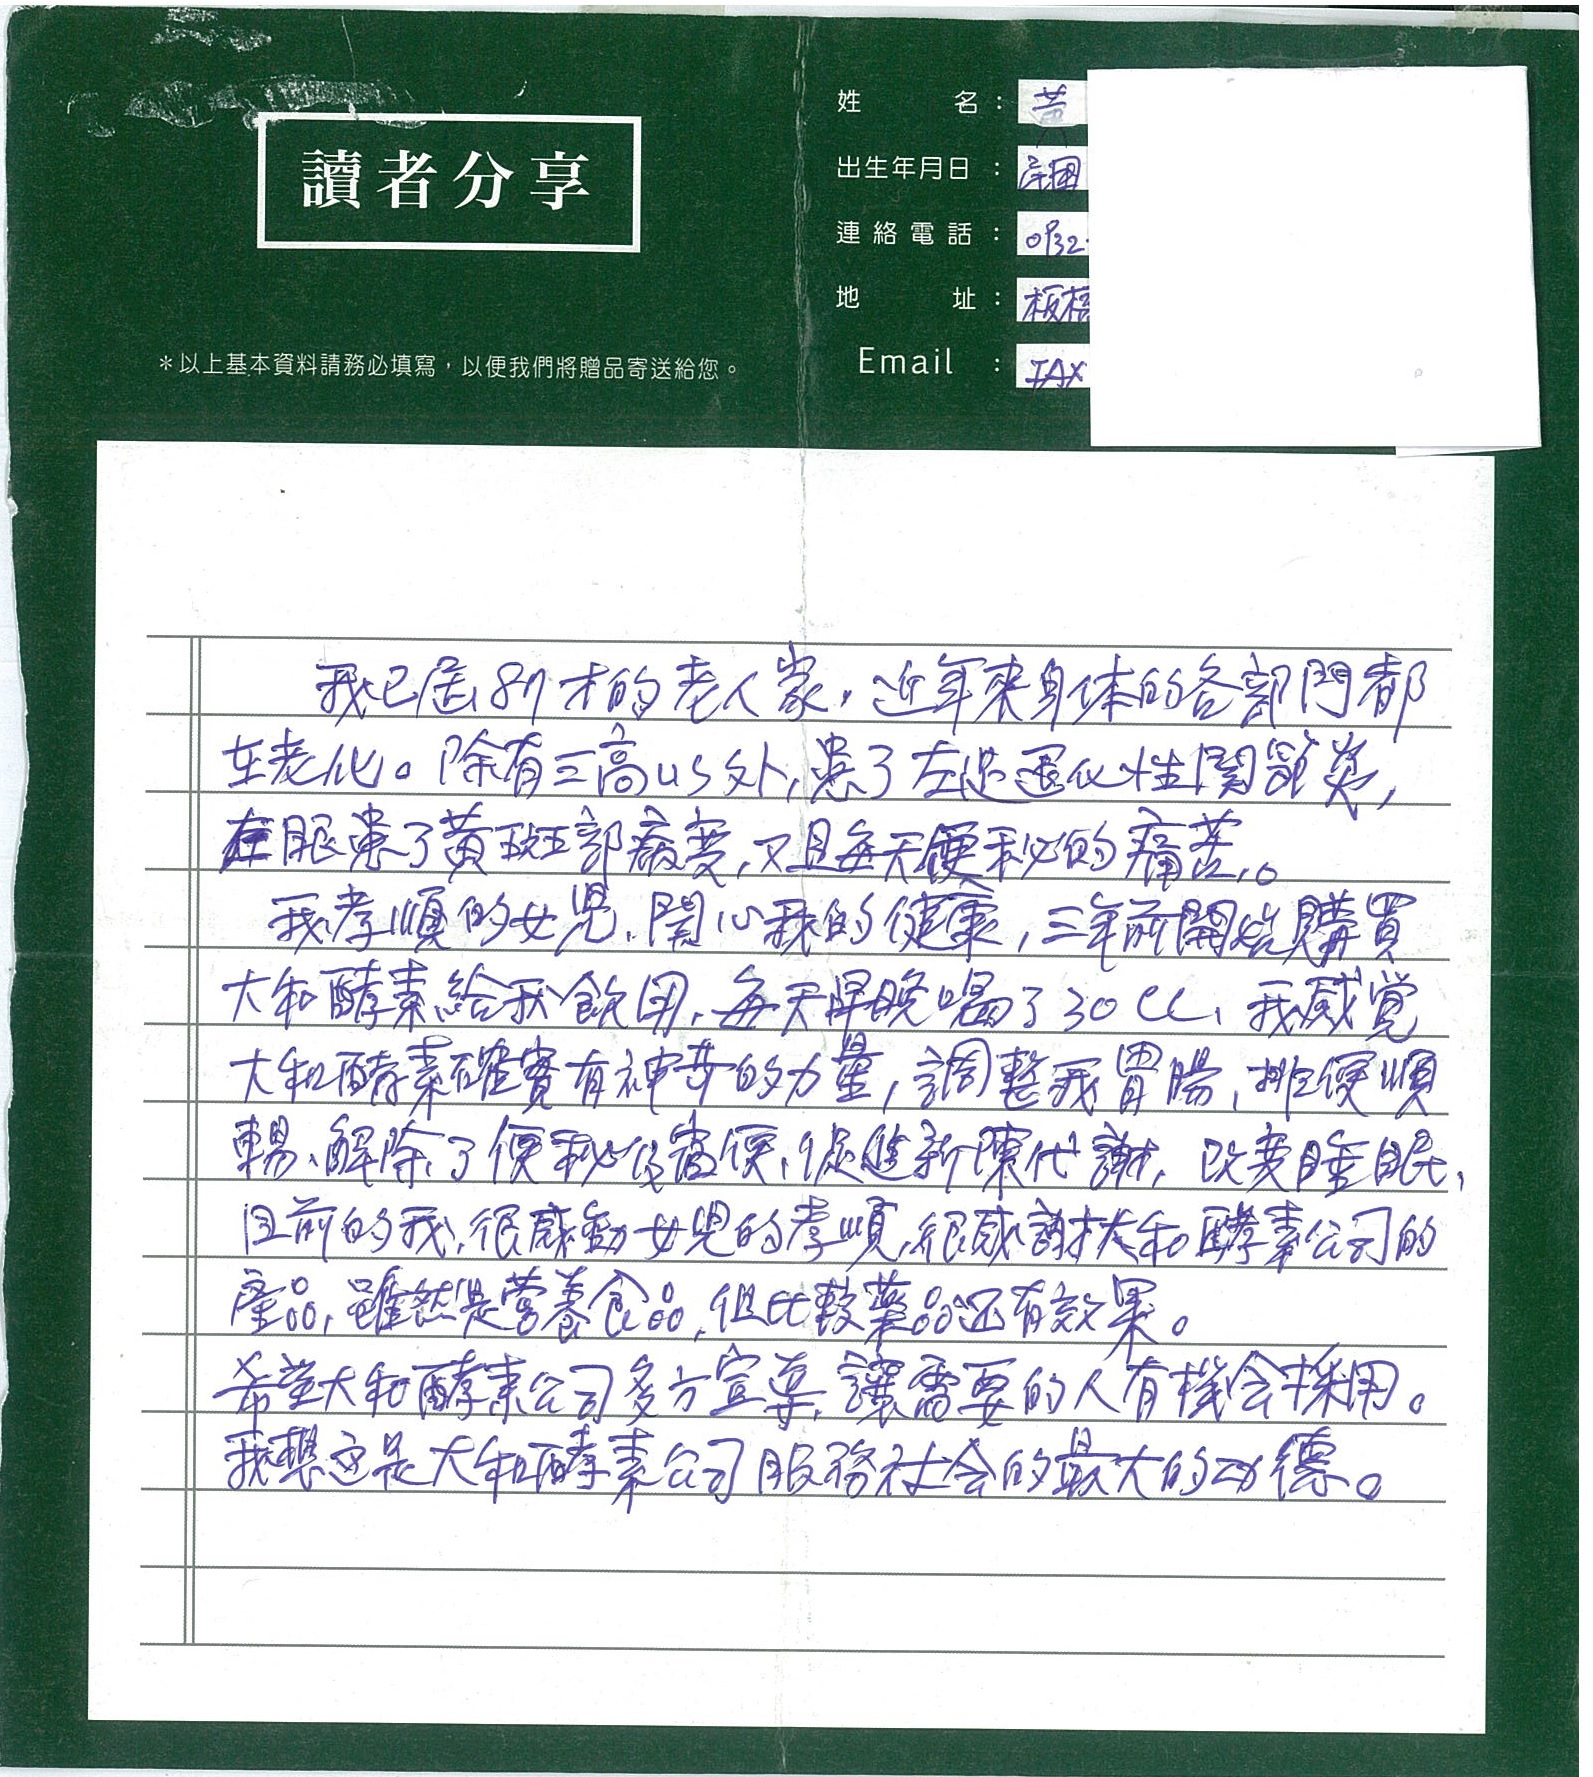 讀者分享
姓名：黃
出生年月日：民國
連絡電話：0932-
地址：板橋
Email：FAX
＊以上基本資料請務必填寫，以便我們將贈品寄送給您。
我已屆87才的老人家，近年來身体的各部門都
在老化。除有三高以外，患了左足退化性関節炎，
左眼患了黃斑部病変，又且每天便秘的痛苦。
我孝順的女児，関心我的健康，三年前開始購買
大和酵素給我飲用，每天早晚喝了30CC，我感覚
大和酵素確實有神奇的力量，調整我胃腸，排便順
暢、解除了便秘及宿便，促進新陳代謝，改変睡眠，
目前的我，很感動女児的孝順，很感謝大和酵素公司的
產品，雖然是营養食品，但比較薬品还有效果。
希望大和酵素公司多方宣導，讓需要的人有機会採用。
我想这是大和酵素公司服務社会的最大的功德。